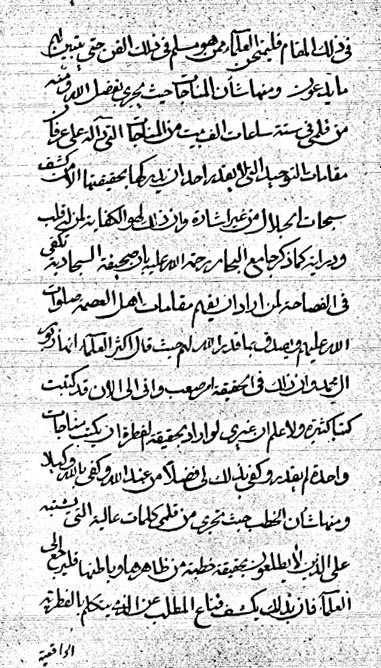 في ذلك المقام فليمتحن العلماء ممن هو مسلم في ذلك الفن حتى يتبين لهم
ما يدعون ومنها شأن المناجات حيث يجري بفضل الله ومنه
من قلمي في ستة ساعات الف بيت من المناجات التي دالة على عرفان
مقامات التوحيد التي لا يقدر احد ان يدركها بحقيقتها الا من كشف
سبحات الجلال من غير اشارة وان ذلك لهو الكفاية لمن له قلب
ودراية كما ذكر جامع البحار رحمة الله عليه بان صحيفة السجادية تكفي
في الفصاحة لمن اراد ان يفهم مقامات اهل العصمة صلوات
الله عليهم ويصدق بما قدر الله لهم حيث قال اكثر العلماء انها زبور
ال محمد وان ذلك في الحقيقة امر صعب واني الى الان قد كتبت
كتبا كثيرة ولا علم ان غيري لو اراد بحقيقة الفطرة ان يكتب مناجات
واحدة لم يقدر وكفى بذلك لي فضلا من عند الله وكفى بالله وكيلا
ومنها شأن الخطب حيث تجري من قلمي كلمات عالية التي يشتبه
على الذين لا يطلعون بحقيقة خطبته من ظاهرها وباطنها فليرجع الى
العلماء فان بذلك يكشف قناع المطلب عن الذي يتكلم بالفطرة
الواقعية